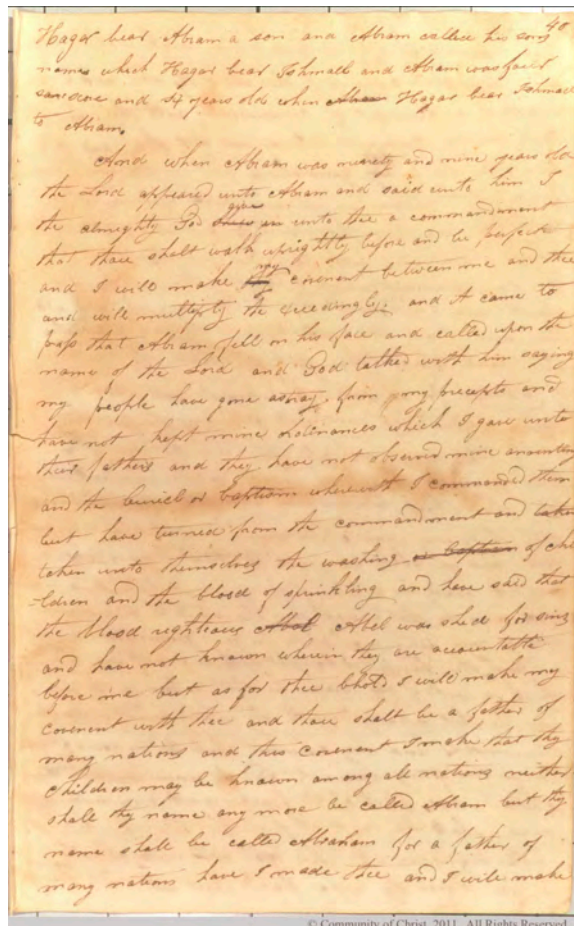 40
Hagar bear Abram a son and Abram called his sons
names which Hagar bear Ishmall and Abram was fower
and 4 years old when Abram Hagar bear Ishmall
to Abram.
And when Abram was ninety and nine years old
the Lord appeared unto Abram and said unto him I
the almighty God give unto thee a commandment
that thou shalt walk uprightly before and be perfect
and I will make my covenent between me and thee
and will multiply the exceedingly. and it came to
pass that Abram fell on his face and called upon the
name of the Lord and God talked with him saying
my people have gone astray from my precepts and
have not kept mine ordinances which I gave unto
their fathers and they have not observed mine anointing
and the buriel or baptism wherewith I commanded them
but have turned from the commandment and taken
taken unto themselves the washing or baptism of chi
-ldren and the blood of sprinkling and have said that
the blood righteous Abel Abel was shed for sins
and have not known wherein they are accountable
before me but as for thee bhold I will make my
covenent with thee and thou shalt be a father of
many nations and this covenent I make that thy
children may be known among all nations neither
shall thy name any more be called Abram but thy
name shall be called Abraham for a father of
many nations have I made thee and I will make
© Community of Christ, 2011. All Rights Reserved